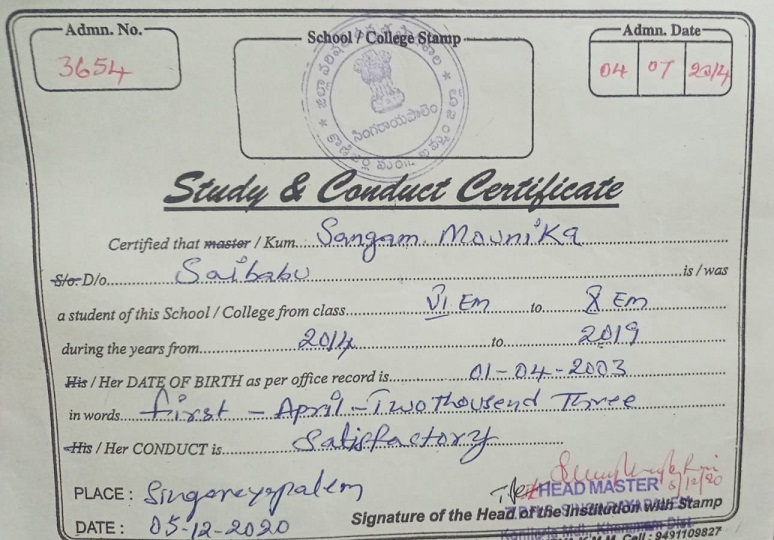 Admn. No.
3654
School / College Stamp
సింగరాయపాలెం
Admn. Date
04 07 2014
Study & Conduct Certificate
Certified that master / Kum. Sangam Mounika
S/o. D/o. Saibabu is / was
a student of this School / College from class VI Em to X Em
during the years from 2014 to 2019
His / Her DATE OF BIRTH as per office record is 01-04-2003
in words first - April - Two thousend Three
His / Her CONDUCT is Satisfactory
PLACE : Singarayapalem
5/12/20
HEAD MASTER
DATE : 05-12-2020
Signature of the Head of the Institution with Stamp
Cell : 9491109827